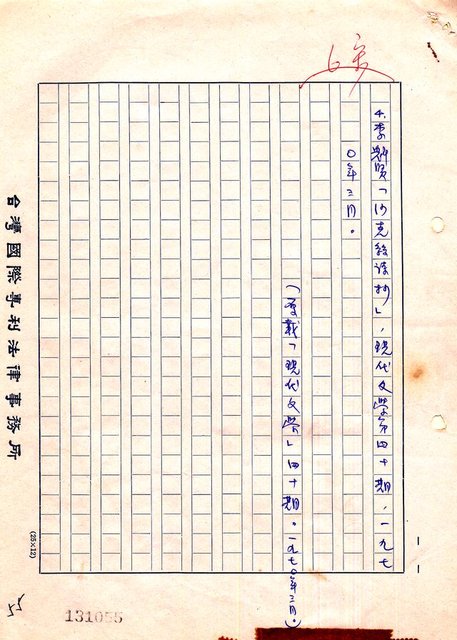 6宋
4.李魁贤「沙克絲詩抄」,現代文學第四十期,一九七
〇年三月。
(原載「現代文學」四十期。一九七〇年三月。)
台灣國際專利法律事務所
(25×12)
55
131055